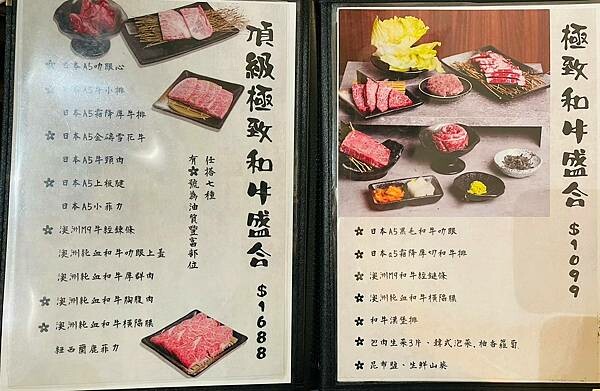 頂級極致和牛盛合 $1688
任搭七種
有✽號為油質豐富部位
✽ 日本A5肋眼心
✽ 日本A5牛小排
日本A5霜降厚牛排
✽ 日本A5金磚雪花牛
日本A5牛頸肉
✽ 日本A5上板腱
日本A5小菲力
✽ 澳洲M9牛輕鍊條
澳洲純血和牛肋眼上蓋
澳洲純血和牛厚鮮肉
✽ 澳洲純血和牛胸腹肉
✽ 澳洲純血和牛橫隔膜
紐西蘭鹿菲力
極致和牛盛合 $1099
✽ 日本A5黑毛和牛肋眼
✽ 日本a5霜降厚切和牛排
✽ 澳洲M9和牛輕鏈條
✽ 澳洲純血和牛橫隔膜
✽ 和牛漢堡排
✽ 包肉生菜3片、韓式泡菜、柚香蘿蔔
✽ 昆布鹽、生鮮山葵